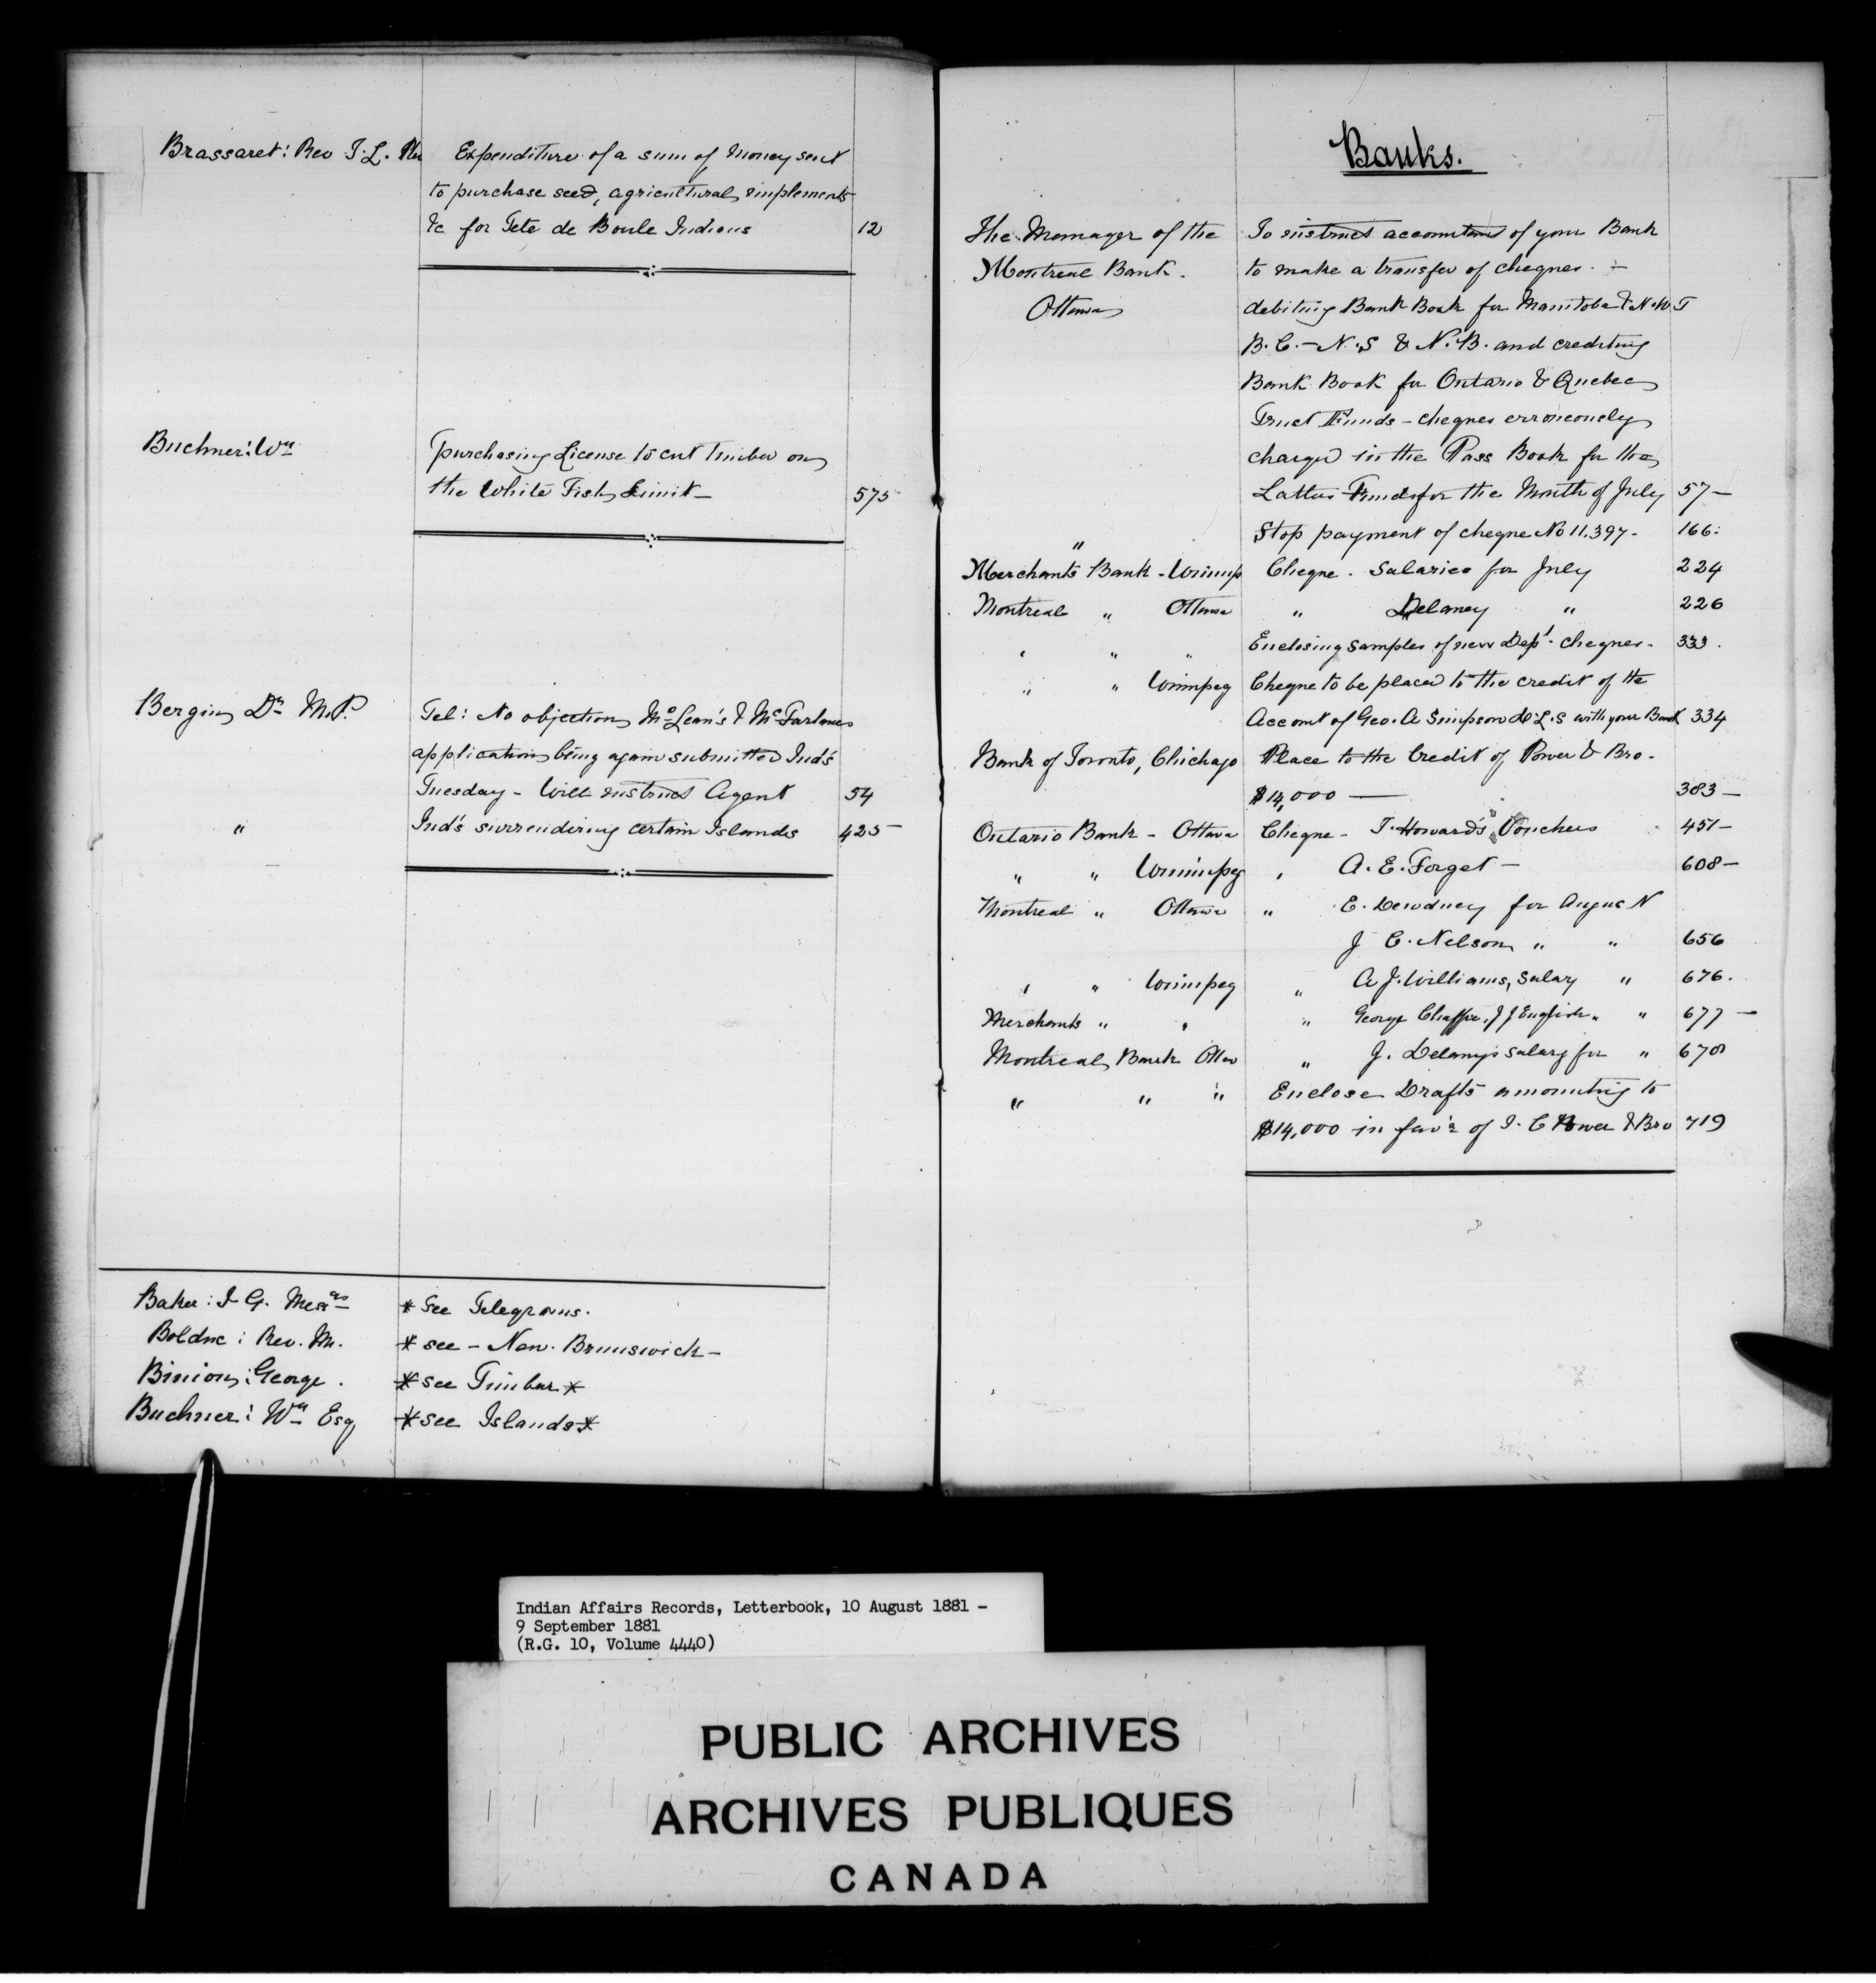 Brassaret: Rev T. L. Expenditure of a sum of Money sent
to purchase seed, agricultural implements
&c for Tete de Boule Indians 12
Buchner: Wm purchasing License to cut timber on
the White Fish Limit — 575
Bergin, Dr M.P. Tel: No objection McLean's & McFarlane's
application being again submitted Ind's
Tuesday - Will instruct Agent 54
" Ind's surrendering certain Islands 425
Baker: I. G. Messrs * See Telegrams.
Bolduc: Rev. M. * see - New. Brunswick -
Binion: George. * see Timber *
Buchner: Wm Esq * see Islands *
Banks.
The Manager of the To instruct accountant of your Bank
Montreal Bank. to make a transfer of cheques. -
Ottawa debiting Bank Book for Manitoba & N.W T
B.C. - N.S & N.B. and crediting
Bank Book for Ontario & Quebec
Trust Funds - cheques erroneously
charged in the Pass Book for the
Latter Funds for the Month of July 57 —
" Stop payment of cheque No 11.397 - 166.
Merchants Bank - Winnip Cheque. Salaries for July 224
Montreal " Ottawa " Delaney " 226
" " " Enclosing samples of new Dept. cheques - 333.
" " Winnipeg Cheque to be placed to the credit of the
Account of Geo. A Simpson D.L.S with your Bank 334
Bank of Toronto, Chichago Place to the Credit of Power & Bro -
$14,000 — 383 —
Ontario Bank - Ottawa Cheque - T. Howard's Vouchers 451 —
" " Winnipeg " A. E. Forget — 608 —
Montreal " Ottawa " E. Dewdney for August
J C. Nelson " " 656
" " Winnipeg " A J. Williams, Salary " 676.
Merchants " " " George Chaffee, J J English " " 677 —
Montreal Bank Ottaw " J. Delany's salary for " 678
" " " Enclose Drafts amounting to
$14,000 in fav'r of I. C Power & Bro 719
Indian Affairs Records, Letterbook, 10 August 1881 -
9 September 1881
(R.G. 10, Volume 4440)
PUBLIC ARCHIVES
ARCHIVES PUBLIQUES
CANADA